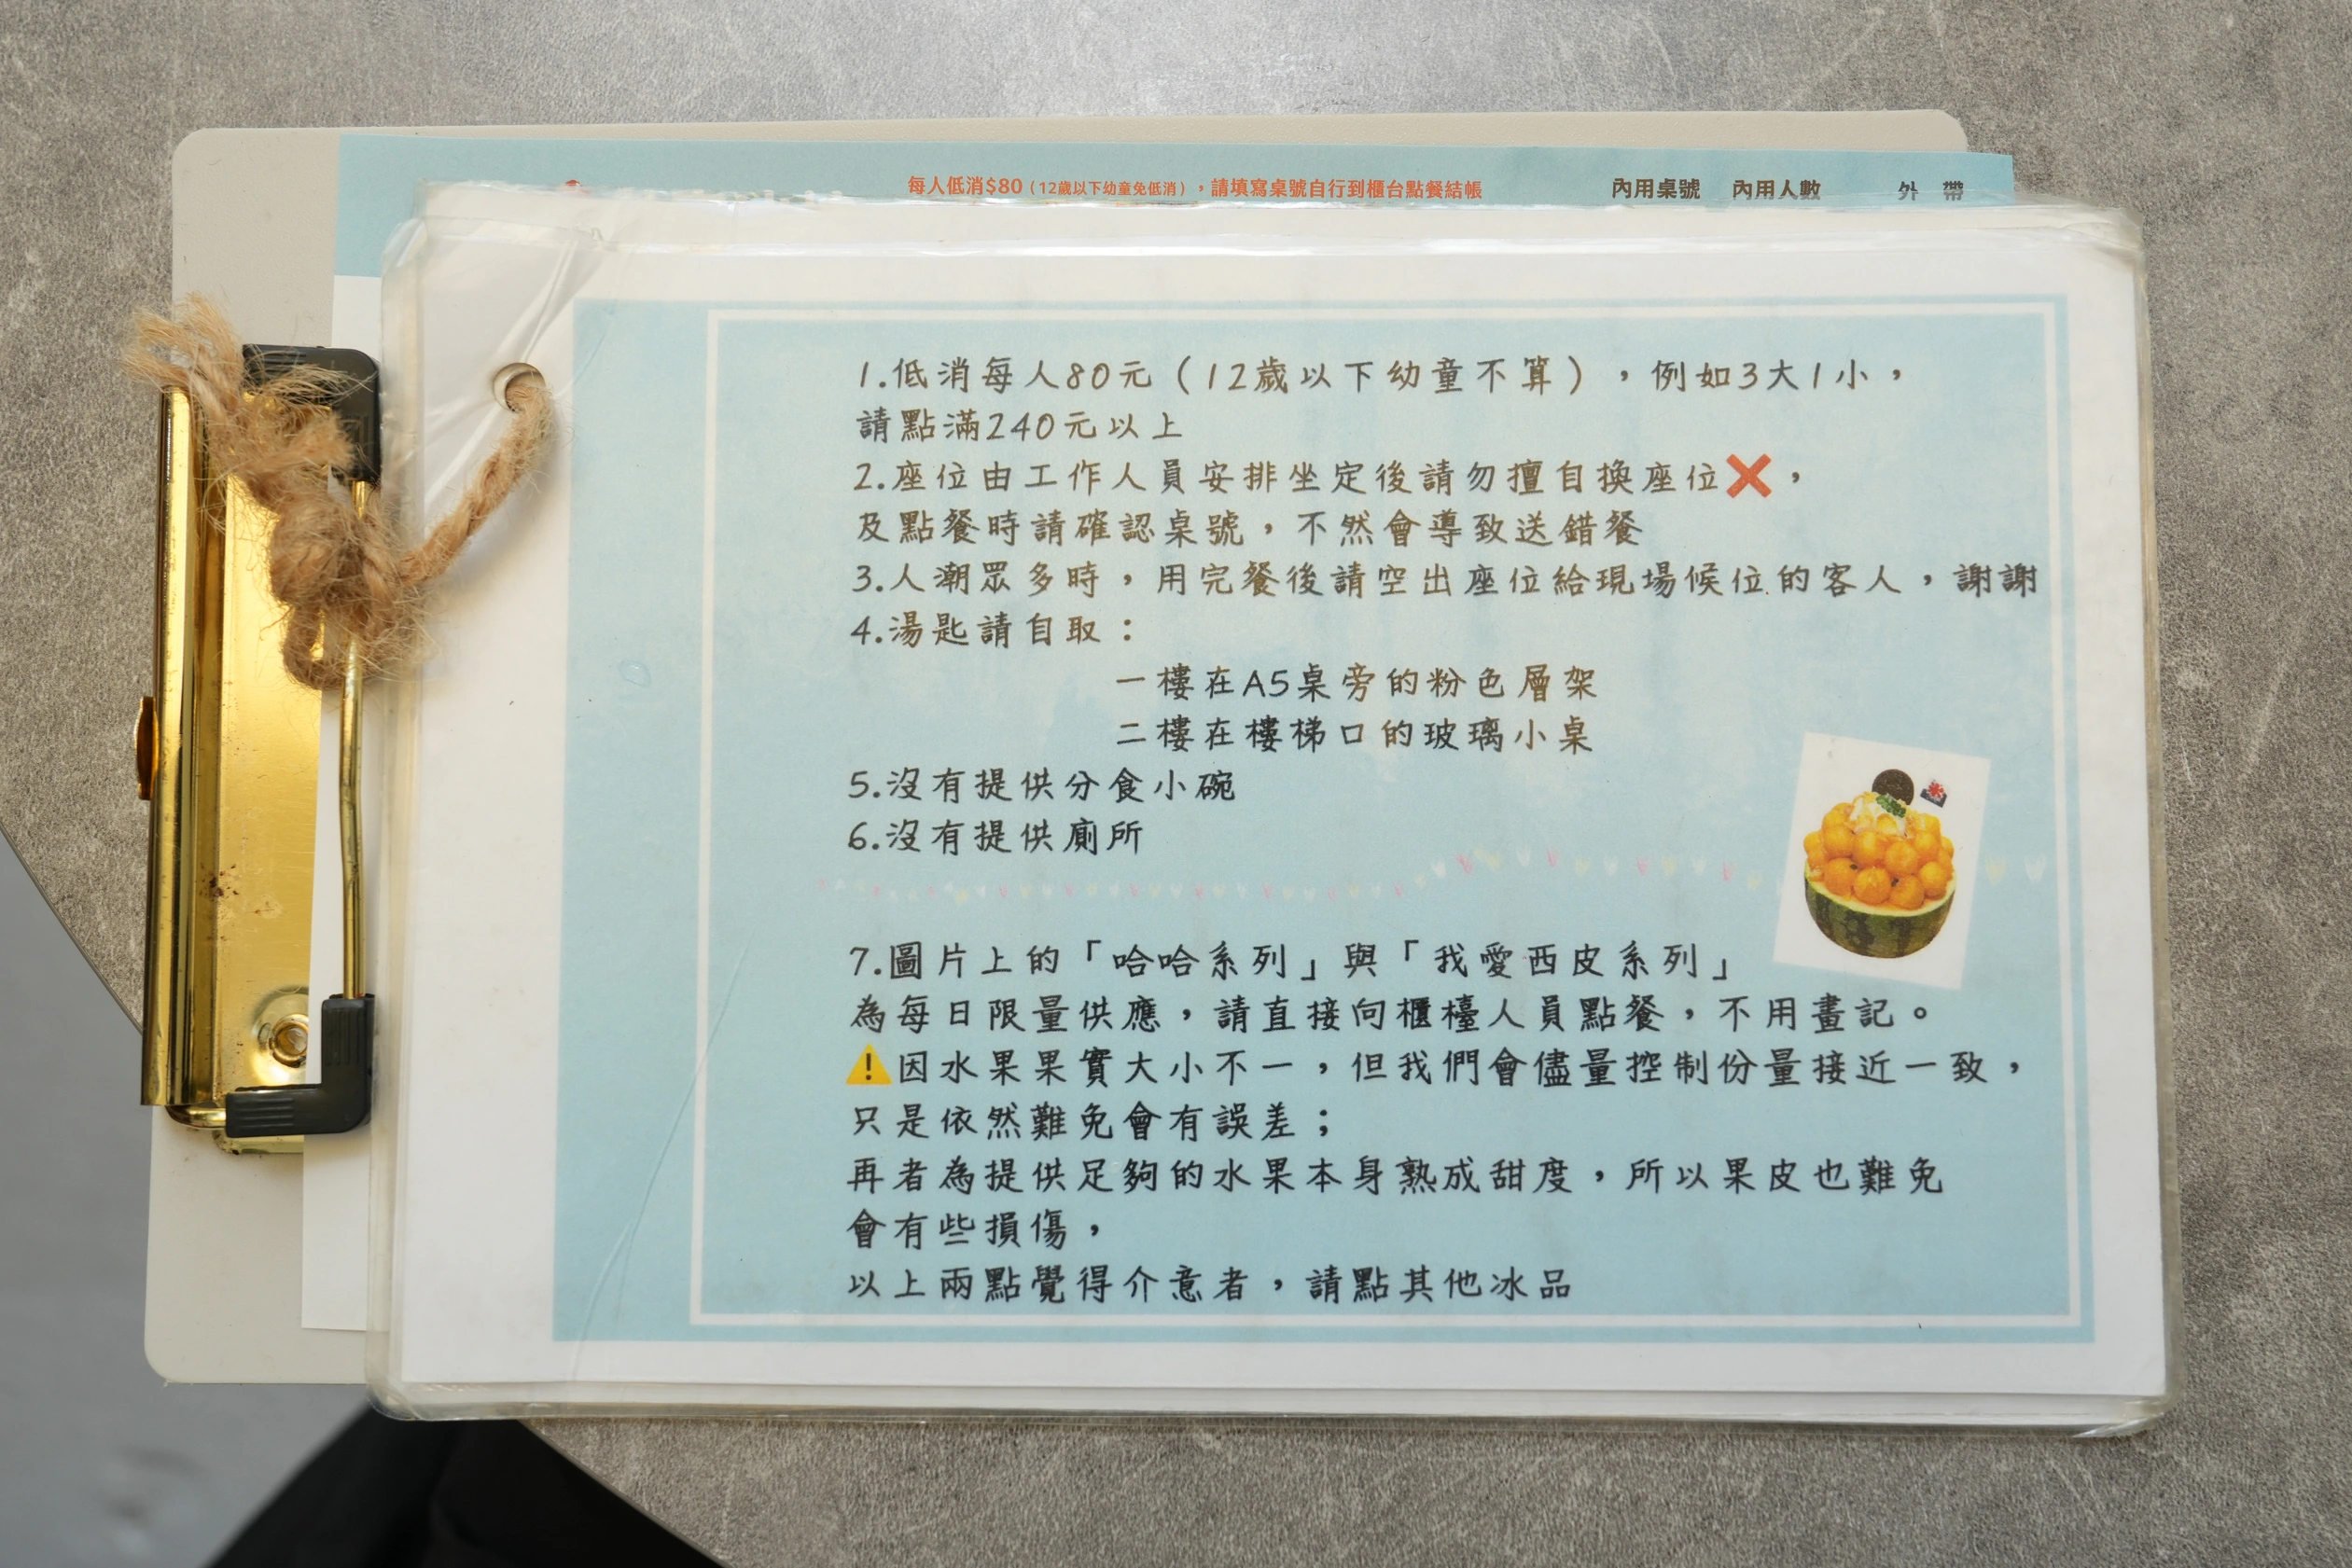 每人低消$80（12歲以下幼童免低消），請填寫桌號自行到櫃台點餐結帳
內用桌號 內用人數 外 帶
1.低消每人80元（12歲以下幼童不算），例如3大1小，
請點滿240元以上
2.座位由工作人員安排坐定後請勿擅自換座位❌，
及點餐時請確認桌號，不然會導致送錯餐
3.人潮眾多時，用完餐後請空出座位給現場候位的客人，謝謝
4.湯匙請自取：
一樓在A5桌旁的粉色層架
二樓在樓梯口的玻璃小桌
5.沒有提供分食小碗
6.沒有提供廁所
7.圖片上的「哈哈系列」與「我愛西皮系列」
為每日限量供應，請直接向櫃檯人員點餐，不用畫記。
⚠️因水果果實大小不一，但我們會儘量控制份量接近一致，
只是依然難免會有誤差；
再者為提供足夠的水果本身熟成甜度，所以果皮也難免
會有些損傷，
以上兩點覺得介意者，請點其他冰品